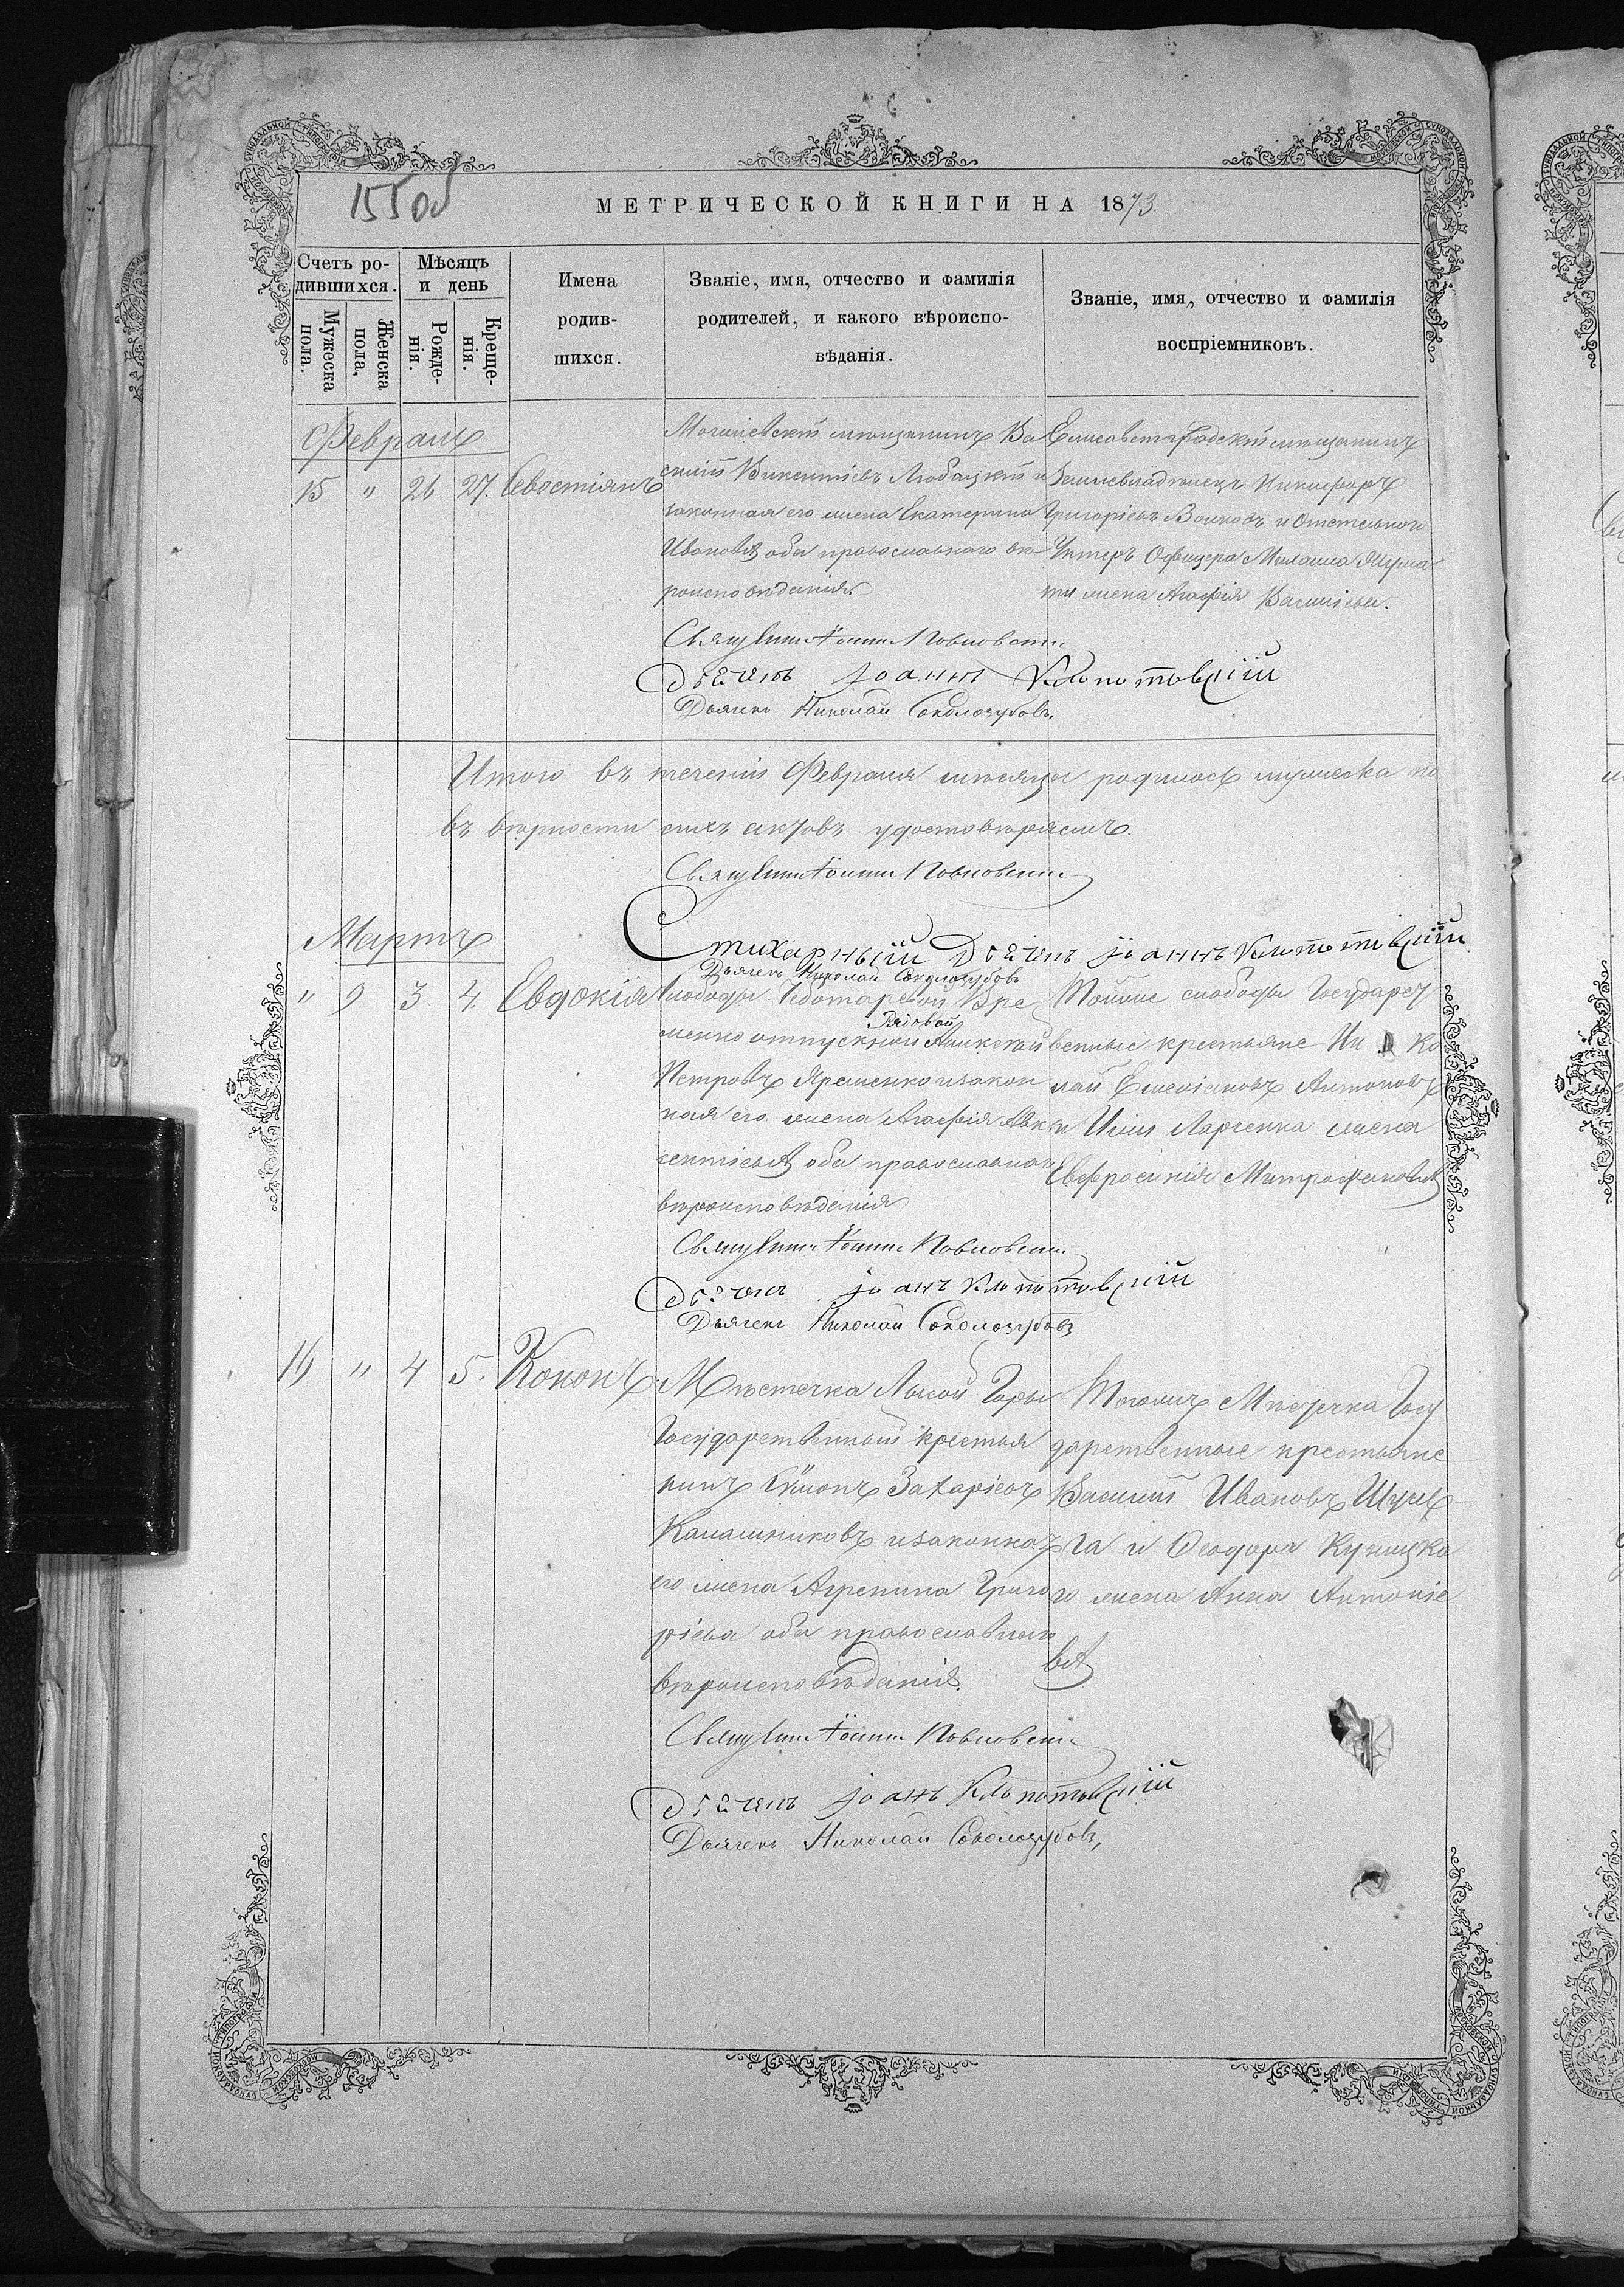 155об
МЕТРИЧЕСКОЙ КНИГИ НА 1873.
Счетъ ро-
дившихся.
Мужеска
пола.
Женска
пола,
Мѣсяцъ
и день
Рожде-
нія.
Креще-
нія.
Имена
родив-
шихся.
Званіе, имя, отчество и фамилія
родителей, и какого вѣроиспо-
вѣданія.
Званіе, имя, отчество и фамилія
воспріемниковъ.
Февраль
15 " 26 27. Севостіянъ
Могилевскій мѣщанинъ Ва
силій Викентіевъ Любацкій и
законная его жена Екатерина
Иванова, оба православнаго вѣ
роисповѣданія.
Елисаветградскій мѣщанинъ
Землевладѣлецъ Никифоръ
Григорьевъ Волковъ и Отставного
Унтеръ Офицера Михаила
жена Агафія Васильева.
Священникъ Іоаннъ
Дьячекъ Іоаннъ Клопотовскій
Дьячекъ Николай Соколозубовъ
Итого въ теченіи Февраля мѣсяца родилось мужеска по
въ вѣрности сихъ актовъ удостовѣряемъ.
Священникъ Іоаннъ
Стихарный Дьячекъ Іоаннъ Клопотовскій
Дьячекъ Николай Соколозубовъ
Мартъ
" 9 3 4. Евдокія
Слободы Вре
менно отпускной Рядовой
Петровъ Яременко и закон
ная его жена Агафія Авк
сентіева, оба православнаго
вѣроисповѣданія
Тойже слободы Государст
венные крестьяне Ни ко
лай Емеліановъ Антоновъ
и Ильи Ларченка жена
Евфросинія Митрофанова
Священникъ Іоаннъ
Дьячекъ Іоанъ Клопотовскій
Дьячекъ Николай Соколозубовъ
16 " 4 5. Кононъ
Мѣстечка Лысой Горы
Государственный крестья
нинъ Симонъ Захаріевъ
Калашниковъ и законная
его жена Агрепина Григо
ріева оба православнаго
вѣроисповѣданія.
Тогожъ Мѣстечка Госу
дарственные крестьяне
Василій Ивановъ Шуль
га и Ѳеодора Куницка
го жена Анна Антоніе
ва
Священникъ Іоаннъ
Дьячекъ Іоанъ Клопотовскій
Дьячекъ Николай Соколозубовъ,